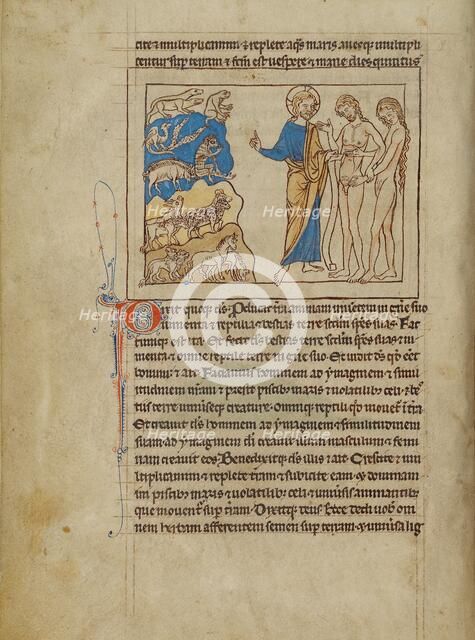 cite & multiplicamini & replete aqs maris auesq; multipli
centur sup terram & fcm est vespere & mane dies quintus
Heritage Heritage
Heritage Heritage
Dixit quoq; ds. Producat terra animam uiuentem in gñe suo
iumenta & reptilia & bestias terre scdm spes suas. Fac
tumque est ita. Et fecit ds bestias terre scdm spes suas & iu
menta & omne reptile terre in gñe suo. Et uidit ds qd eet
bonum & ait. Faciamus hominem ad ymaginem & simi
litudinem nram & presit piscibus maris & uolatilibus celi & bes
tiis terre uniuerseq; creature. Omniq; reptili qd mouet in tra
Et creauit ds hominem ad ymaginem & similitudinem
suam. ad ymaginem di creauit illum masculum & femi
nam creauit eos. Benedixitq; ds illis & ait. Crescite & mul
tiplicamini & replete terram & subicite eam. & domina
mi piscib; maris & uolatilib; celi & uniuersis animantib;
que mouent sup tram. Dixitq; deus. Ecce dedi uobis om
nem herbam afferentem semen sup terram & uniuersa lig